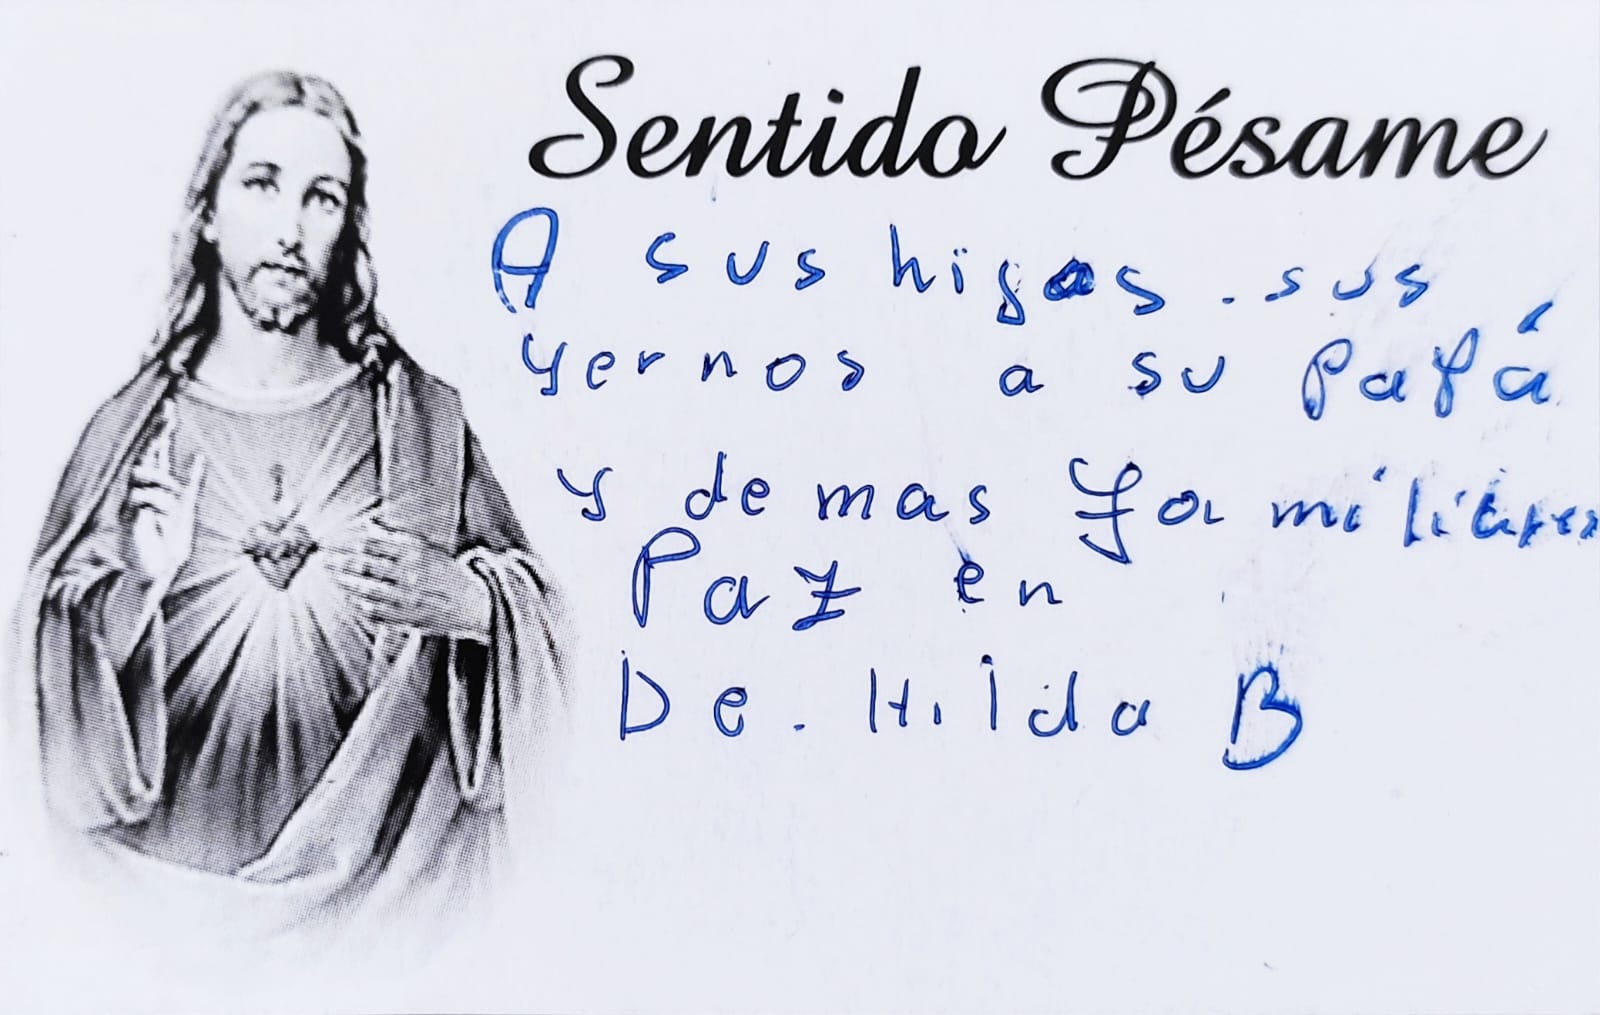 Sentido Pésame
A sus hijas. sus
yernos a su Papá
y demas familiares
Paz en
De. Hilda B